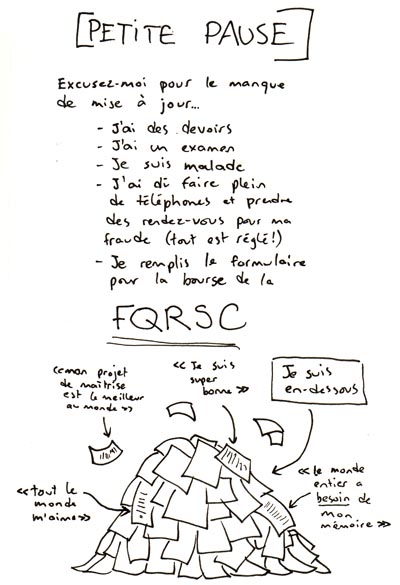 [PETITE PAUSE]
Excusez-moi pour le manque
de mise à jour...
- J'ai des devoirs
- J'ai un examen
- Je suis malade
- J'ai dû faire plein
de téléphones et prendre
des rendez-vous pour ma
fraude (tout est réglé!)
- Je remplis le formulaire
pour la bourse de la
FQRSC
<<mon projet
de maîtrise
est le meilleur
au monde>>
<<Je suis
super
bonne>>
Je suis
en-dessous
<<tout le
monde
m'aime>>
<<le monde
entier a
besoin de
mon
mémoire>>